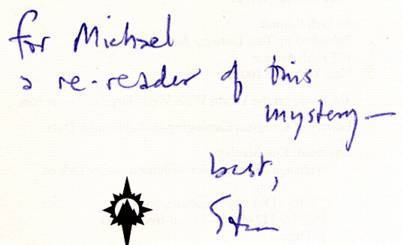 for Michael
a re-reader of this
mystery—
best,